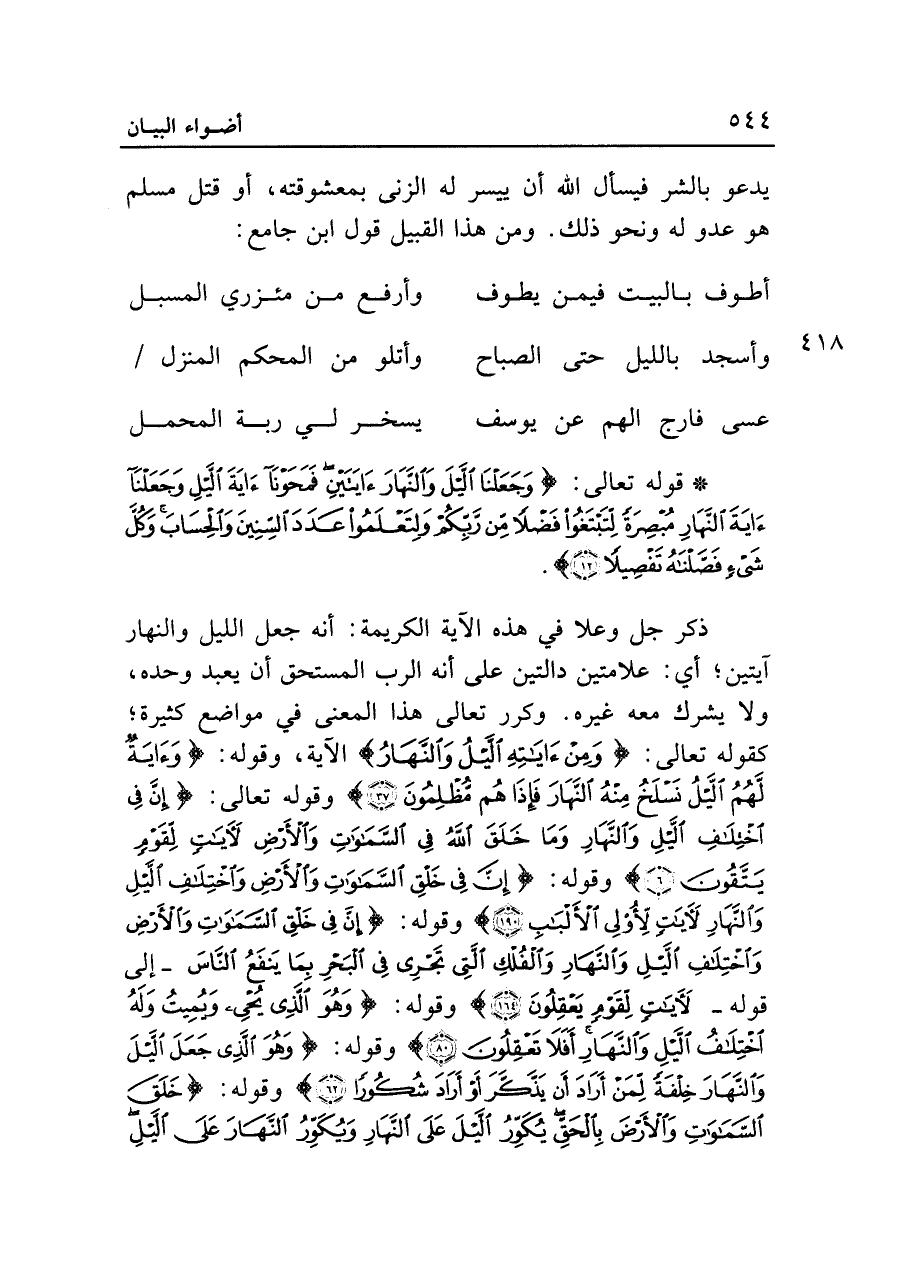 ٥٤٤ أضواء البيان
يدعو بالشر فيسأل الله أن ييسر له الزنى بمعشوقته، أو قتل مسلم
هو عدو له ونحو ذلك. ومن هذا القبيل قول ابن جامع:
أطوف بالبيت فيمن يطوف وأرفع من مئزري المسبل
٤١٨ وأسجد بالليل حتى الصباح وأتلو من المحكم المنزل /
عسى فارج الهم عن يوسف يسخر لي ربة المحمل
* قوله تعالى: ﴿ وَجَعَلْنَا ٱلَّيْلَ وَٱلنَّهَارَ ءَايَتَيْنِۖ فَمَحَوْنَآ ءَايَةَ ٱلَّيْلِ وَجَعَلْنَآ
ءَايَةَ ٱلنَّهَارِ مُبْصِرَةً لِّتَبْتَغُوا۟ فَضْلًا مِّن رَّبِّكُمْ وَلِتَعْلَمُوا۟ عَدَدَ ٱلسِّنِينَ وَٱلْحِسَابَۚ وَكُلَّ
شَىْءٍ فَصَّلْنَٰهُ تَفْصِيلًا ١٢﴾.
ذكر جل وعلا في هذه الآية الكريمة: أنه جعل الليل والنهار
آيتين؛ أي: علامتين دالتين على أنه الرب المستحق أن يعبد وحده،
ولا يشرك معه غيره. وكرر تعالى هذا المعنى في مواضع كثيرة؛
كقوله تعالى: ﴿ وَمِنْ ءَايَٰتِهِ ٱلَّيْلُ وَٱلنَّهَارُ﴾ الآية، وقوله: ﴿ وَءَايَةٌ
لَّهُمُ ٱلَّيْلُ نَسْلَخُ مِنْهُ ٱلنَّهَارَ فَإِذَا هُم مُّظْلِمُونَ ٣٧﴾ وقوله تعالى: ﴿ إِنَّ فِى
ٱخْتِلَٰفِ ٱلَّيْلِ وَٱلنَّهَارِ وَمَا خَلَقَ ٱللَّهُ فِى ٱلسَّمَٰوَٰتِ وَٱلْأَرْضِ لَءَايَٰتٍ لِّقَوْمٍ
يَتَّقُونَ ٦﴾ وقوله: ﴿ إِنَّ فِى خَلْقِ ٱلسَّمَٰوَٰتِ وَٱلْأَرْضِ وَٱخْتِلَٰفِ ٱلَّيْلِ
وَٱلنَّهَارِ لَءَايَٰتٍ لِّأُو۟لِى ٱلْأَلْبَٰبِ ١٩٠﴾ وقوله: ﴿ إِنَّ فِى خَلْقِ ٱلسَّمَٰوَٰتِ وَٱلْأَرْضِ
وَٱخْتِلَٰفِ ٱلَّيْلِ وَٱلنَّهَارِ وَٱلْفُلْكِ ٱلَّتِى تَجْرِى فِى ٱلْبَحْرِ بِمَا يَنفَعُ ٱلنَّاسَ ـ إلى
قوله ـ لَءَايَٰتٍ لِّقَوْمٍ يَعْقِلُونَ ١٦٤﴾ وقوله: ﴿ وَهُوَ ٱلَّذِى يُحْىِۦ وَيُمِيتُ وَلَهُ
ٱخْتِلَٰفُ ٱلَّيْلِ وَٱلنَّهَارِۚ أَفَلَا تَعْقِلُونَ ٨٠﴾ وقوله: ﴿ وَهُوَ ٱلَّذِى جَعَلَ ٱلَّيْلَ
وَٱلنَّهَارَ خِلْفَةً لِّمَنْ أَرَادَ أَن يَذَّكَّرَ أَوْ أَرَادَ شُكُورًا ٦٢﴾ وقوله: ﴿ خَلَقَ
ٱلسَّمَٰوَٰتِ وَٱلْأَرْضَ بِٱلْحَقِّۖ يُكَوِّرُ ٱلَّيْلَ عَلَى ٱلنَّهَارِ وَيُكَوِّرُ ٱلنَّهَارَ عَلَى ٱلَّيْلِۖ